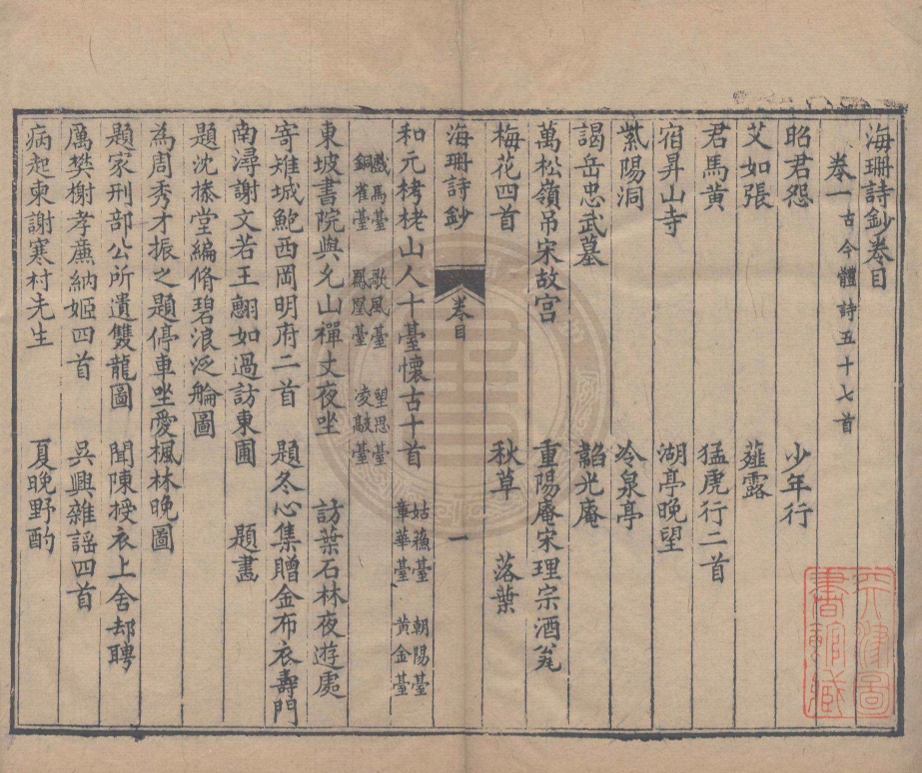 海珊詩鈔卷目
卷一 古今體詩五十七首
昭君怨 少年行
艾如張 薤露
君馬黃 猛虎行二首
宿昇山寺 湖亭晚望
紫陽洞 冷泉亭
謁岳忠武墓 韜光庵
萬松嶺吊宋故宮 重陽庵宋理宗酒瓮
梅花四首 秋草 落葉
海珊詩鈔 卷目 一
和元栲栳山人十臺懷古十首 姑蘓臺 朝陽臺 章華臺 黃金臺
戲馬臺 歌風臺 望思臺 銅雀臺 鳳凰臺 凌歊臺
東坡書院與允山禪丈夜坐 訪葉石林夜遊處
寄雉城鮑西岡明府二首 題冬心集贈金布衣壽門
南潯謝文若王鄮如過訪東圃 題畫
題沈搽堂編脩碧浪泛舲圖
為周秀才振之題停車坐愛楓林晚圖
題家刑部公所遺雙龍圖 聞陳授衣上舍却聘
厲樊榭孝廉納姬四首 吳興雜謡四首
病起柬謝寒村先生 夏晚野酌
天津圖
書館藏